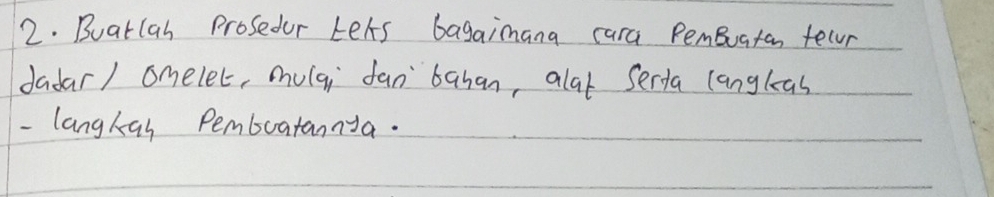 2. Buatlah Prosedur teks bagaimana cara Pembuatan telur
dadar/ omelet, mulai dari bahan, alat serta langkah
- langkah Pembuatannya.